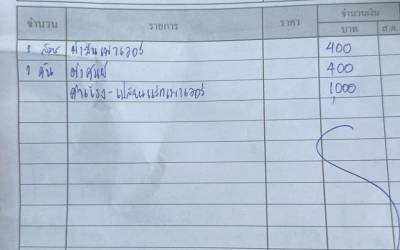 จำนวน รายการ ราคา จำนวนเงิน
บาท ส.ต.
1 น้ำมันเพาเวอร์ 400
1 คัน 400
ค่าแรง-เปลี่ยนแร็คเพาเวอร์ 1000